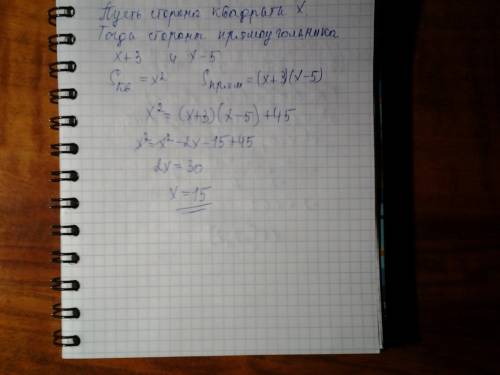 Пусть сторона квадрата X
Тогда стороны прямоугольника
x+3 и x-5
Sкв = x² Sпрям = (x+3)(x-5)
x² = (x+3)(x-5)+45
x² = x² - 2x - 15 + 45
2x = 30
x = 15